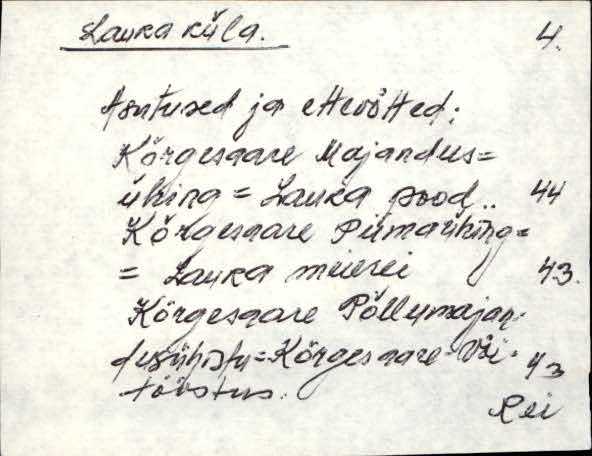 Lauka küla. 4.
Asutused ja ettevõtted:
Kõrgesaare Majandus=
ühing = Lauka pood.. 44
Kõrgesaare Piimaühing=
= Lauka meierei 43.
Kõrgesaare Põllumajan-
dusühistu=Kõrgesaare-Või- 43
tööstus.
Rei